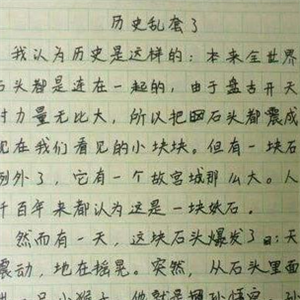 历史乱套了
我认为历史是这样的：本来全世界
石头都是连在一起的，由于盘古开天
力量无比大，所以把石头都震成
现在我们看见的小块块。但有一块石
例外了，它有一个故宫城那么大。人
千百年来都认为这是一块妖石。
然而有一天，这块石头爆发了：天
震动，地在摇晃。突然，从石头里面